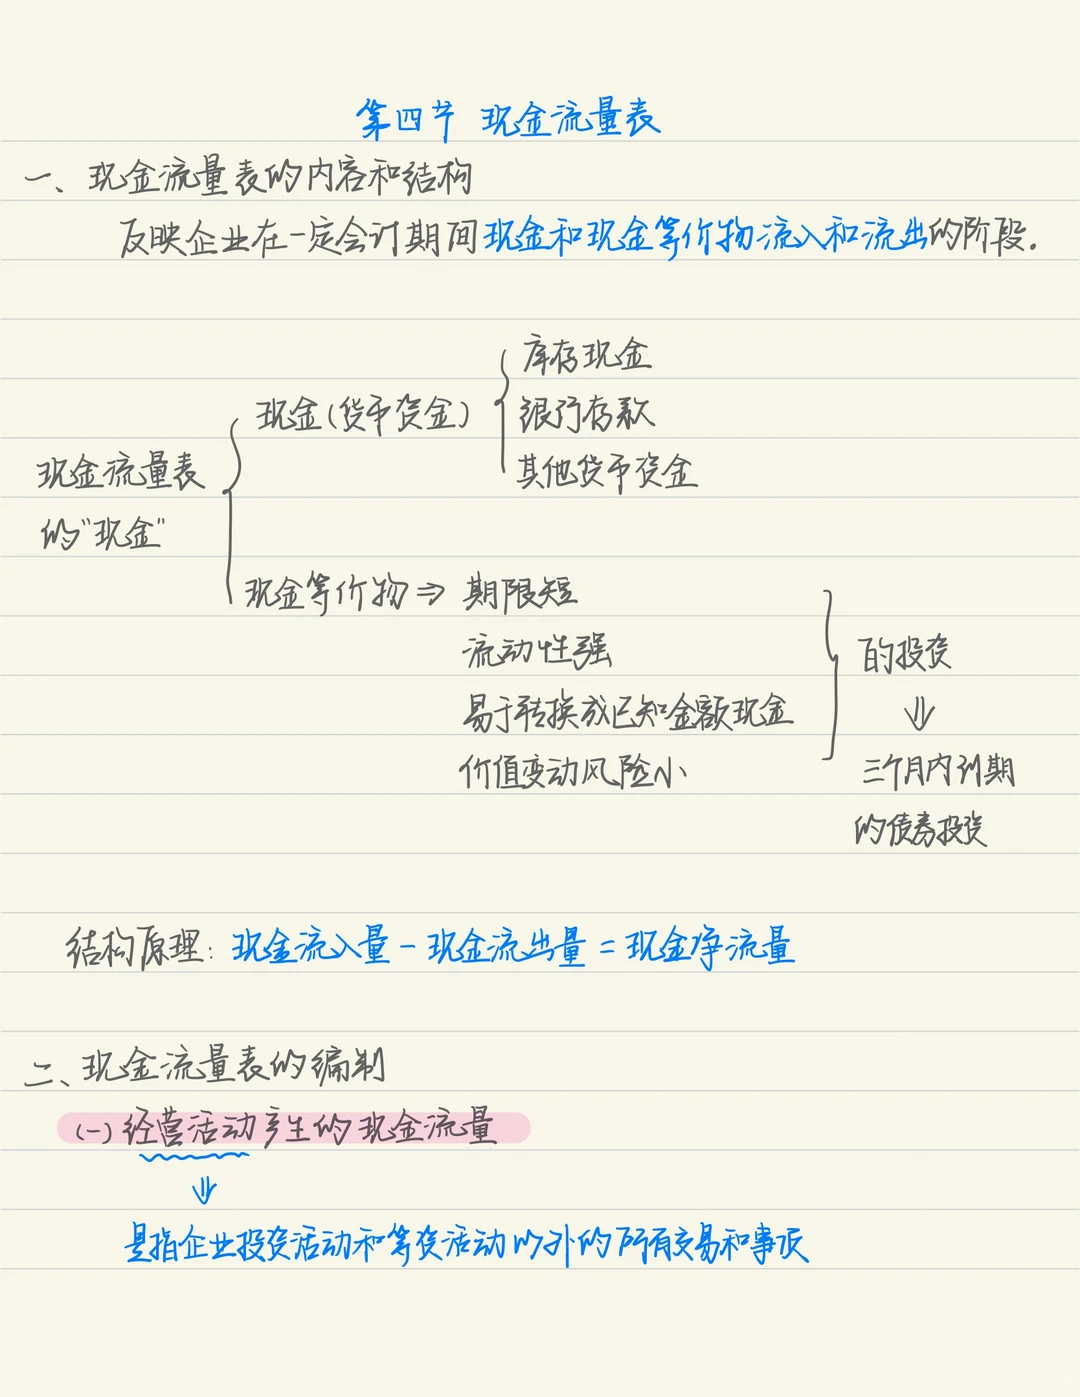 第四节 现金流量表
一、现金流量表的内容和结构
反映企业在一定会计期间现金和现金等价物流入和流出的阶段.
库存现金
现金(货币资金)
银行存款
现金流量表
其他货币资金
的"现金"
现金等价物 ⇒ 期限短
流动性强
的投资
易于转换成已知金额现金
⇓
价值变动风险小
三个月内到期
的债券投资
结构原理: 现金流入量 - 现金流出量 = 现金净流量
二、现金流量表的编制
(一) 经营活动产生的现金流量
⇓
是指企业投资活动和筹资活动以外的所有交易和事项